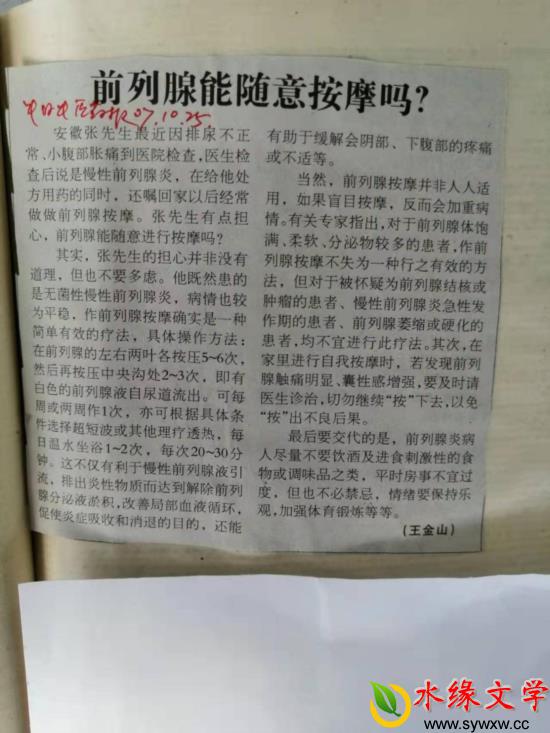 前列腺能随意按摩吗?
07.10.25
安徽张先生最近因排尿不正
常、小腹部胀痛到医院检查,医生检
查后说是慢性前列腺炎，在给他处
方用药的同时，还嘱回家以后经常
做做前列腺按摩。张先生有点担
心，前列腺能随意进行按摩吗?
其实，张先生的担心并非没有
道理，但也不要多虑。他既然患的
是无菌性慢性前列腺炎，病情也较
为平稳，作前列腺按摩确实是一种
简单有效的疗法，具体操作方法：
在前列腺的左右两叶各按压5~6次，
然后再按压中央沟处2~3次，即有
白色的前列腺液自尿道流出。可每
周或两周作1次，亦可根据具体条
件选择超短波或其他理疗透热，每
日温水坐浴1~2次，每次20~30分
钟。这不仅有利于慢性前列腺液引
流，排出炎性物质而达到解除前列
腺分泌液淤积，改善局部血液循环，
促使炎症吸收和消退的目的，还能
有助于缓解会阴部、下腹部的疼痛
或不适等。
当然，前列腺按摩并非人人适
用，如果盲目按摩，反而会加重病
情。有关专家指出，对于前列腺体饱
满、柔软、分泌物较多的患者，作前
列腺按摩不失为一种行之有效的方
法，但对于被怀疑为前列腺结核或
肿瘤的患者、慢性前列腺炎急性发
作期的患者、前列腺萎缩或硬化的
患者，均不宜进行此疗法。其次，在
家里进行自我按摩时，若发现前列
腺触痛明显、囊性感增强，要及时请
医生诊治，切勿继续“按”下去，以免
“按”出不良后果。
最后要交代的是，前列腺炎病
人尽量不要饮酒及进食刺激性的食
物或调味品之类，平时房事不宜过
度，但也不必禁忌，情绪要保持乐
观，加强体育锻炼等等。
（王金山）
水缘文学
www.sywxw.cc